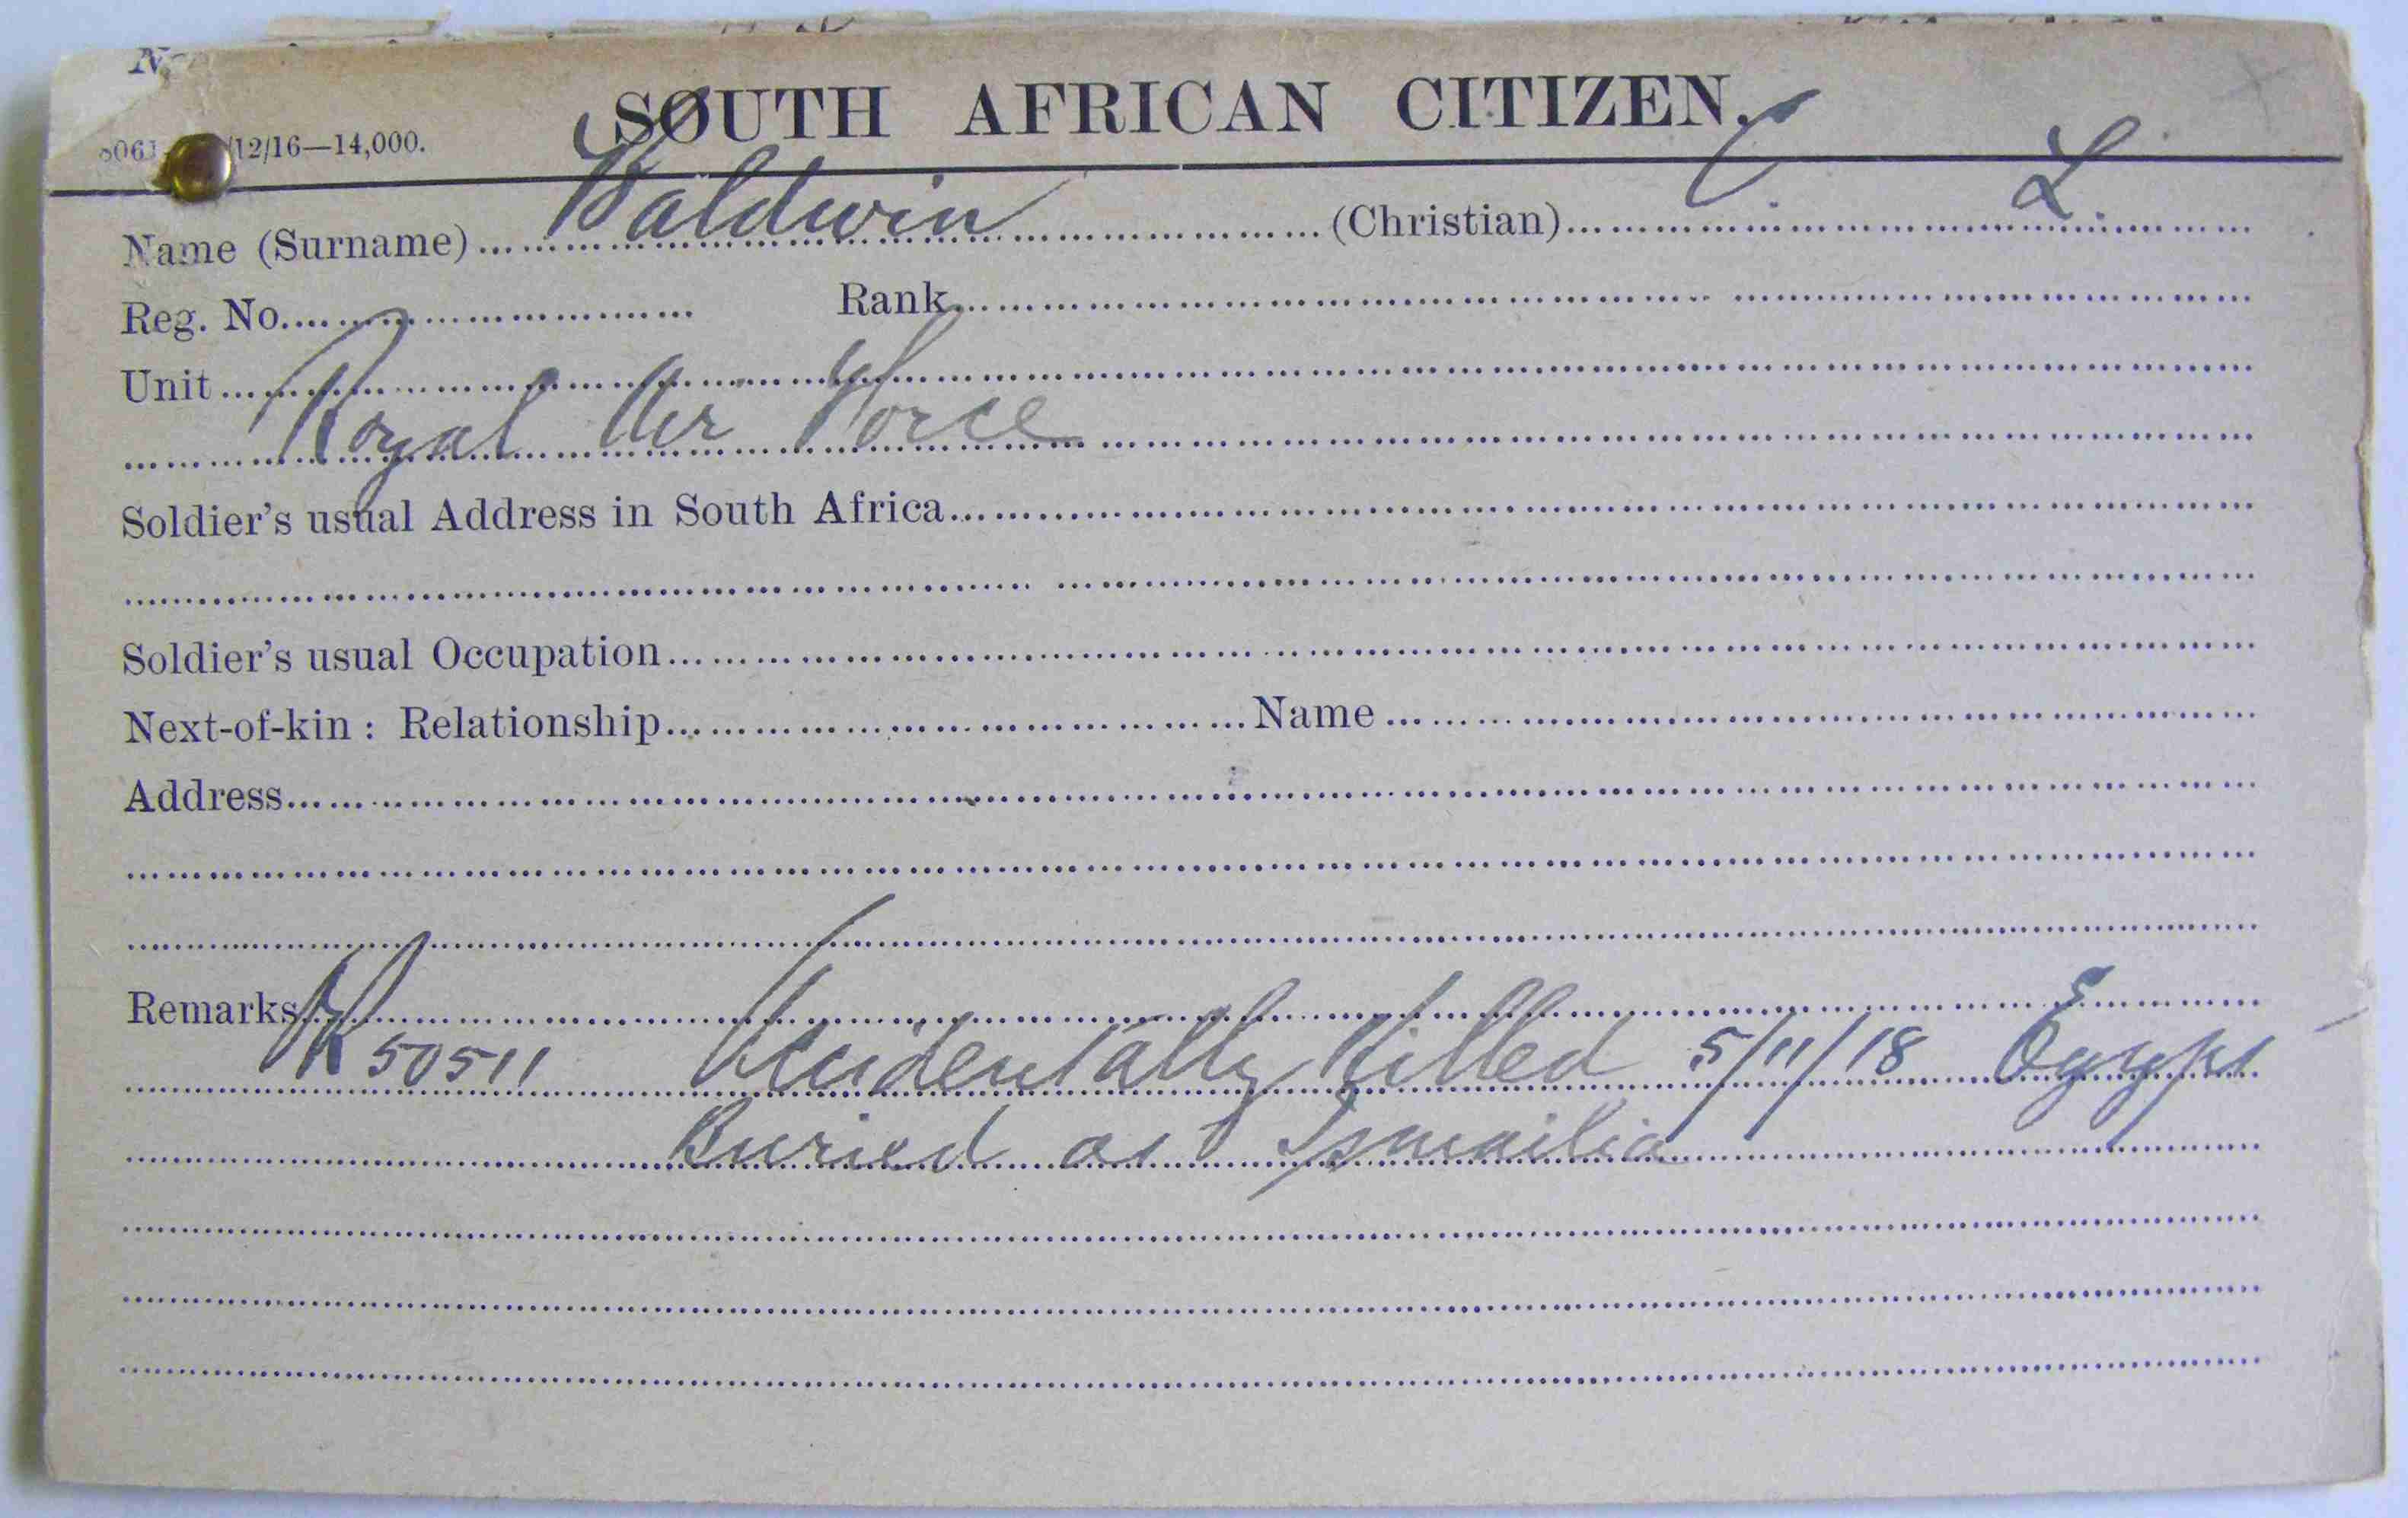 SOUTH AFRICAN CITIZEN.
/12/16—14,000.
Name (Surname) Baldwin (Christian) C. L.
Reg. No. Rank
Unit
Royal Air Force
Soldier's usual Address in South Africa
Soldier's usual Occupation
Next-of-kin : Relationship Name
Address
Remarks
50511 Accidentally Killed 5/11/18 Egypt
Buried at Ismailia